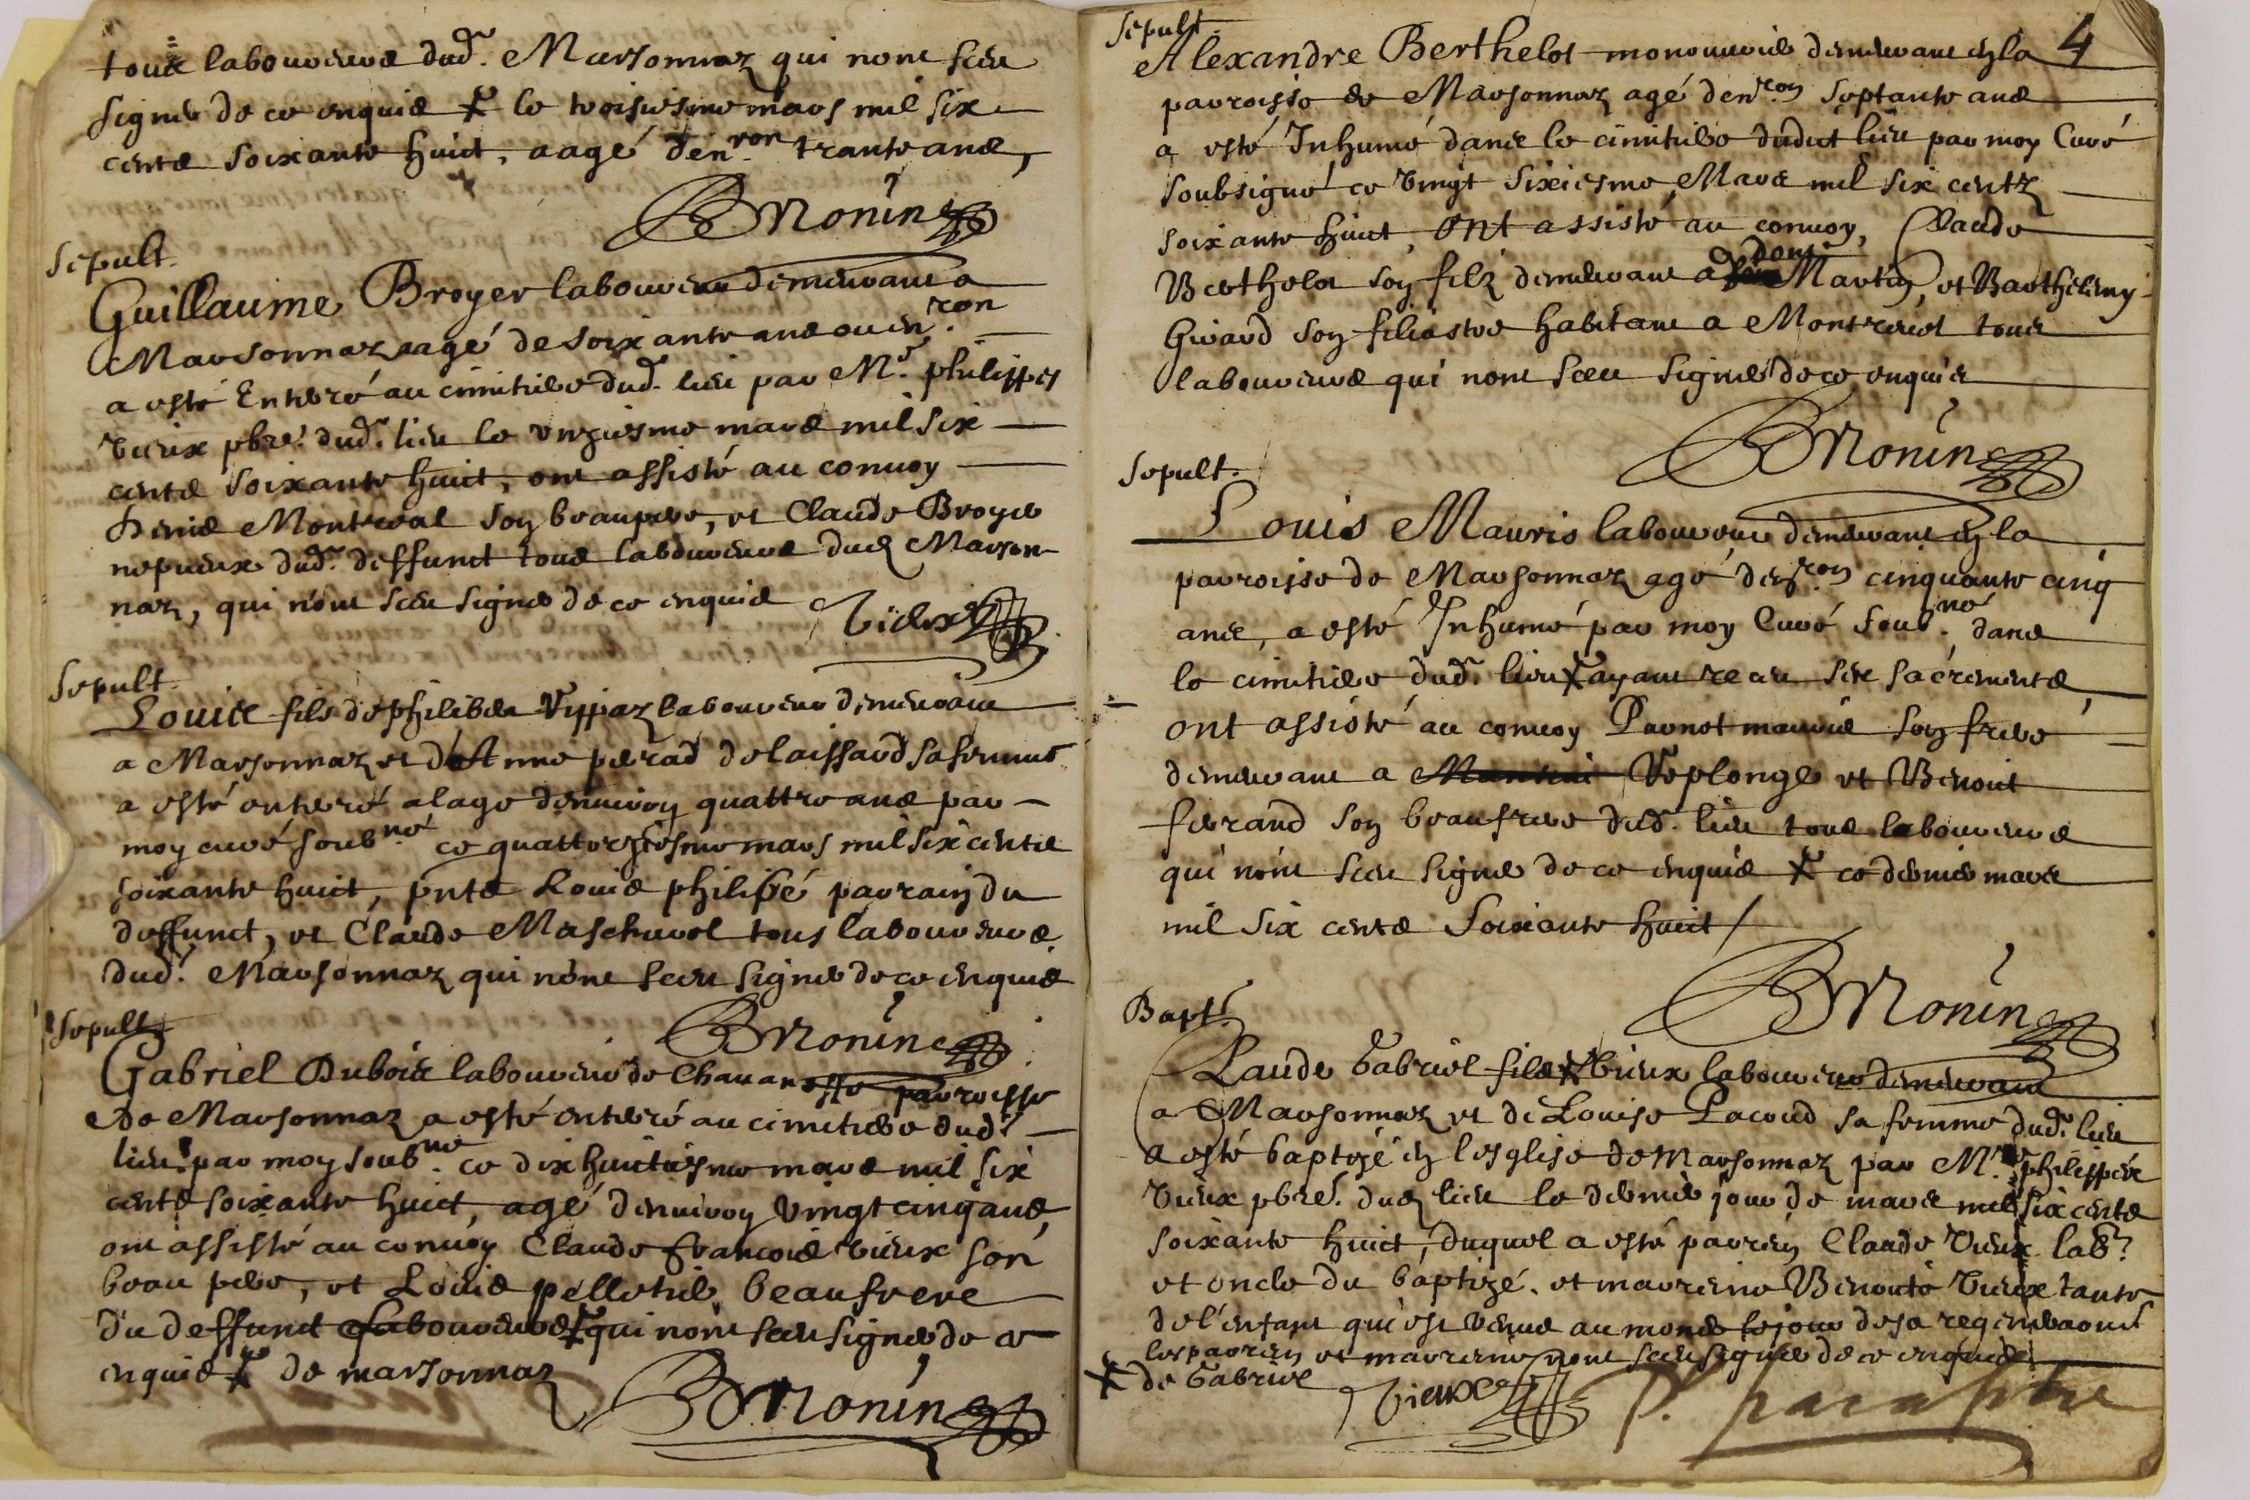 tous laboureurs dud. Marsonnaz qui nont sceu
signer de ce enquis le troisiesme mars mil six
cents soixante huict, aagé d'en.ron trante ans,
BMonin
Sepult.
Guillaume Broyer laboureur demeurant a
Marsonnaz agé de soixante ans ou en.ron
a esté Enterré au cimitiere dud. lieu par Mre. philippes
Vieux pbre. dud. lieu le unziesme mars mil six
cents soixante huict, ont assisté au convoy
Denis Montreal son beaupere, et Claude Broyer
nepveux dud. deffunct tous laboureurs dud Marson-
naz, qui nont sceu signer de ce enquis Vieux
Sepult.
Louis fils de philiber Vippaz laboureur demeurant
a Marsonnaz et d'Anne perrad delaissard sa femme
a esté enterré a lage denviron quattre ans par
moy curé soub.né ce quattorziesme mars mil six cents
soixante huict, pnts Louis philipé parrain du
deffunct, et Claude Maschurel tous laboureurs
dud. Marsonnaz qui nont sceu signer de ce enquis
BMonin
Sepult.
Gabriel Dubois laboureur de Chavanosse parroisse
de Marsonnaz a esté enterré au cimitiere dud.
lieu par moy soub.né ce dix huictiesme mars mil six
cents soixante huict, agé denviron vingt cinq ans,
ont assisté au convoy Claude francois Vieux son
beau pere, et Louis pelletier beaufrere
du deffunct laboureurs qui nont sceu signer de ce
enquis de marsonnaz
BMonin
4
Sepult.
Alexandre Berthelot monouvrier demeurant en la
parroisse de Marsonnaz agé den.ron septante ans
a esté Inhumé dans le cimitiere dudict lieu par moy Curé
soubsigné ce vingt sixiesme Mars mil six centz
soixante huict, ont assisté au convoy, Claude
Berthelot son filz demeurant a dom Martin, et Barthelemy
Girard son filiastre habitant a Montrevel tous
laboureurs qui nont sceu signer de ce enquis
BMonin
Sepult.
Louis Mauris laboureur demeurant en la
parroisse de Marsonnaz agé den.ron cinquante cinq
ans, a esté Inhumé par moy Curé soub.né dans
le cimitiere dud. lieu ayant receu ses sacrements
ont assisté au convoy Pernot mauris son frere
demeurant a Veplonge et Benoit
ferrand son beaufrere dud. lieu tous laboureurs
qui nont sceu signer de ce enquis ce dernier mars
mil six cents soixante huict /
BMonin
Bapt.
Claude Gabriel fils Vieux laboureur demeurant
a Marsonnaz et de Louise Pacoud sa femme dud. lieu
a esté baptizé en lesglise de Marsonnaz par Mre. philippes
Vieux pbre. dud lieu le dernier jour de mars mil six cents
soixante huict, duquel a esté parrein Claude Vieux lab.r
et oncle du baptizé. et marreine Benoite Vieux tante
de l'enfant qui est venue au monde le jour de sa regeneraon
les parrein et marreine nont sceu signer de ce enquis
de Gabriel Vieux P. paraphe